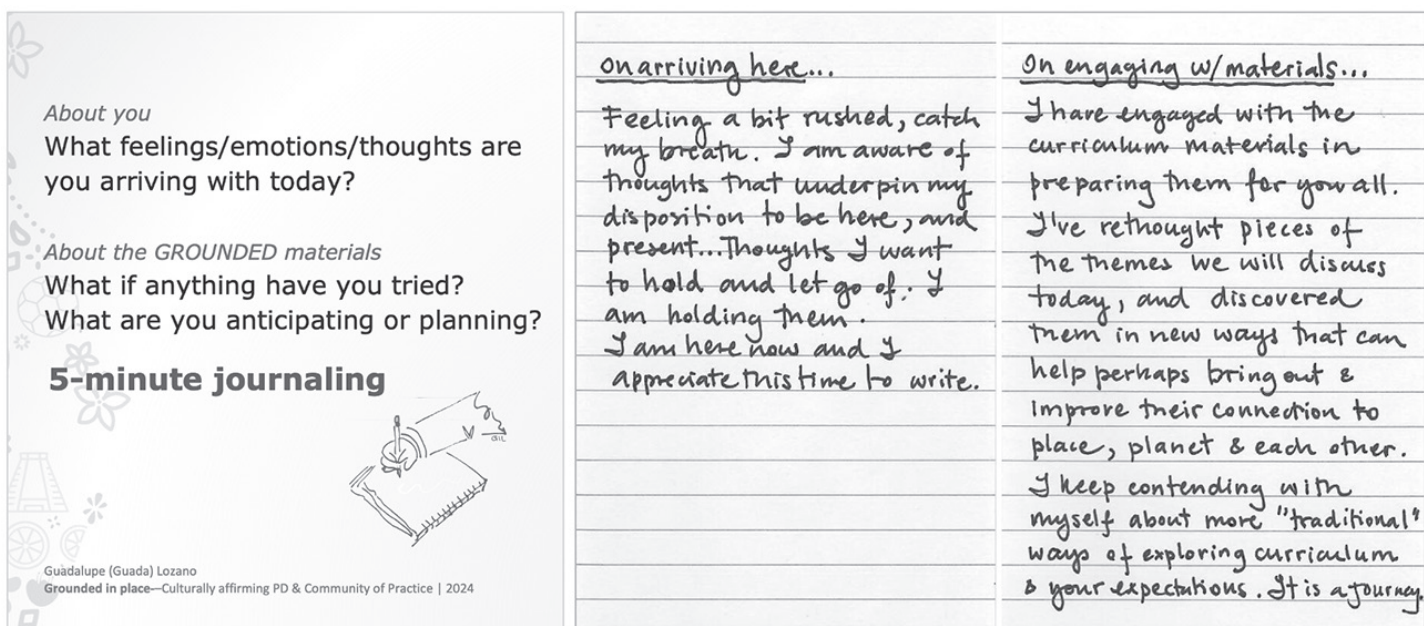 About you
What feelings/emotions/thoughts are
you arriving with today?
About the GROUNDED materials
What if anything have you tried?
What are you anticipating or planning?
5-minute journaling
Guadalupe (Guada) Lozano
Grounded in place—Culturally affirming PD & Community of Practice | 2024
On arriving here...
Feeling a bit rushed, catch
my breath. I am aware of
thoughts that underpin my
disposition to be here, and
present...Thoughts I want
to hold and let go of. I
am holding them.
I am here now and I
appreciate this time to write.
On engaging w/materials...
I have engaged with the
curriculum materials in
preparing them for you all.
I've rethought pieces of
the themes we will discuss
today, and discovered
them in new ways that can
help perhaps bring out &
improve their connection to
place, planet & each other.
I keep contending with
myself about more "traditional"
ways of exploring curriculum
& your expectations. It is a journey.